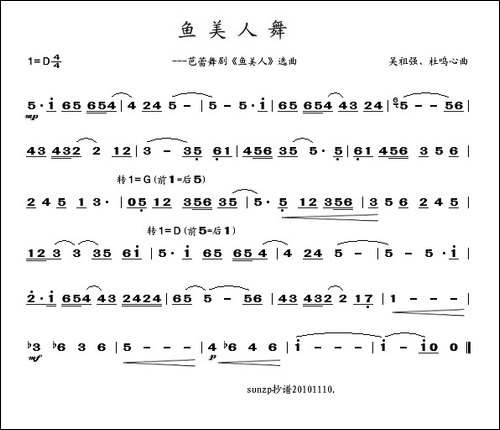 鱼美人舞
1=D 4/4 ---芭蕾舞剧《鱼美人》选曲 吴祖强、杜鸣心曲
5·i 65 654 | 4 245 - | 5 - 5·i | 65 654 43 24 | 6 5 - - 56 |
mp
43 432 2 12 | 3 - 35 61 | 456 35 5· 5 | 61 456 35 6 |
转1=G(前1=后5)
2 4 5 1 3· | 05 12 356 35 | 5· 5 12 356 | 35 6 2 4 5 |
转1=D(前5=后1)
12 3 3 35 6i | 5·i 65 654 | 4 24 5 - | - - 5·i |
2·i 654 43 2424 | 65 5 - 56 | 43 432 2 17 | 1 - - - |
♭3 ♭6 3 6 | 5 - - - | 4 ♭6 4 6 | i - - - | i - i0 0 ‖
mf p
sunzp抄谱20101110.